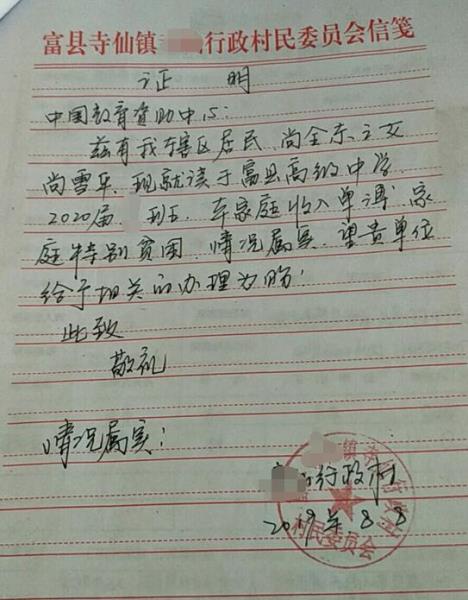 富县寺仙镇 行政村民委员会信笺
证 明
中国教育资助中心:
兹有我辖区居民、尚全东之女
尚雪平、现就读于富县高级中学
2020届 班、车家庭收入单薄、家
庭特别贫困、情况属实、望贵单位
给予相关的办理为盼!
此致
敬礼
情况属实:
行政村
2019年8.8
村民委员会